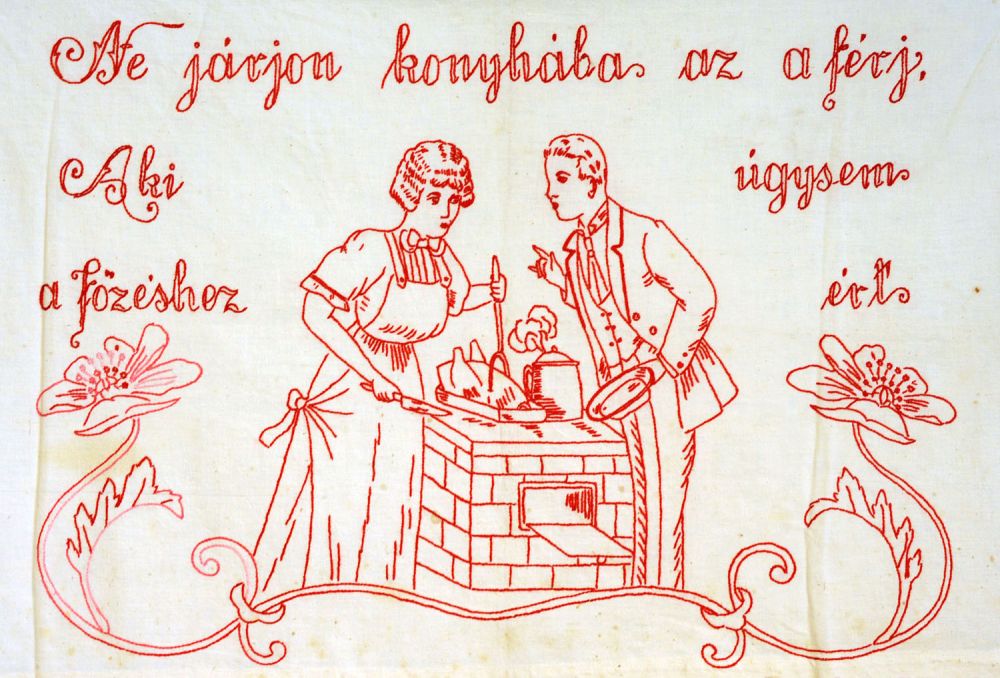 Ne járjon konyhába az a férj,
Aki úgysem
a főzéshez ért.